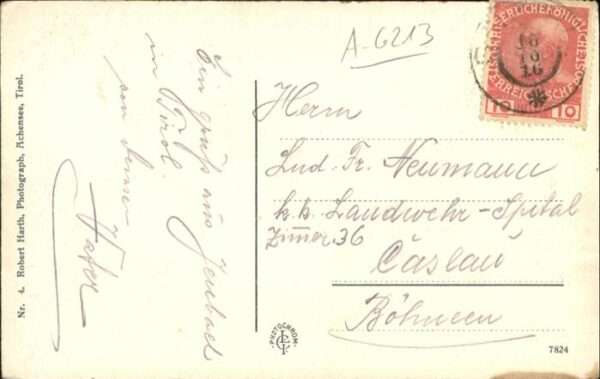 Nr. 4. Robert Harth, Photograph, Achensee, Tirol.
Ein gruß aus Jenbach
in Tirol.
von deinem
Vater
A-6213
Herrn
Lud. Fr. Neumann
k.k. Landwehr-Spital
Zimmer 36
Čáslau
Böhmen
KAISERLICHE KÖNIGLICHE ÖSTERREICHISCHE POST
10 10
18
10
16
PHOTOCHROM
7824